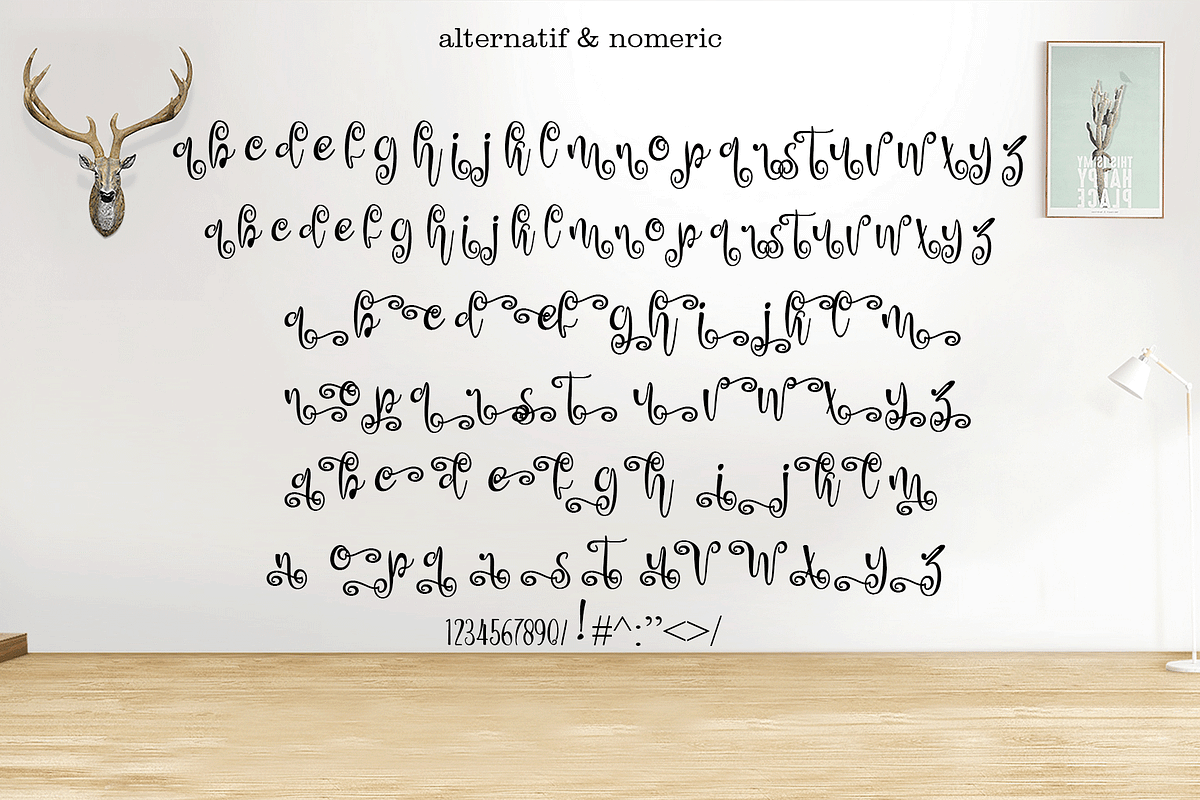 alternatif & nomeric
a b c d e f g h i j k l m n o p q r s t u v w x y z
a b c d e f g h i j k l m n o p q r s t u v w x y z
a b c d e f g h i j k l m
n o p q r s t u v w x y z
a b c d e f g h i j k l m
n o p q r s t u v w x y z
1234567890/!#^:”<>/
THIS IS MY
HAPPY
PLACE